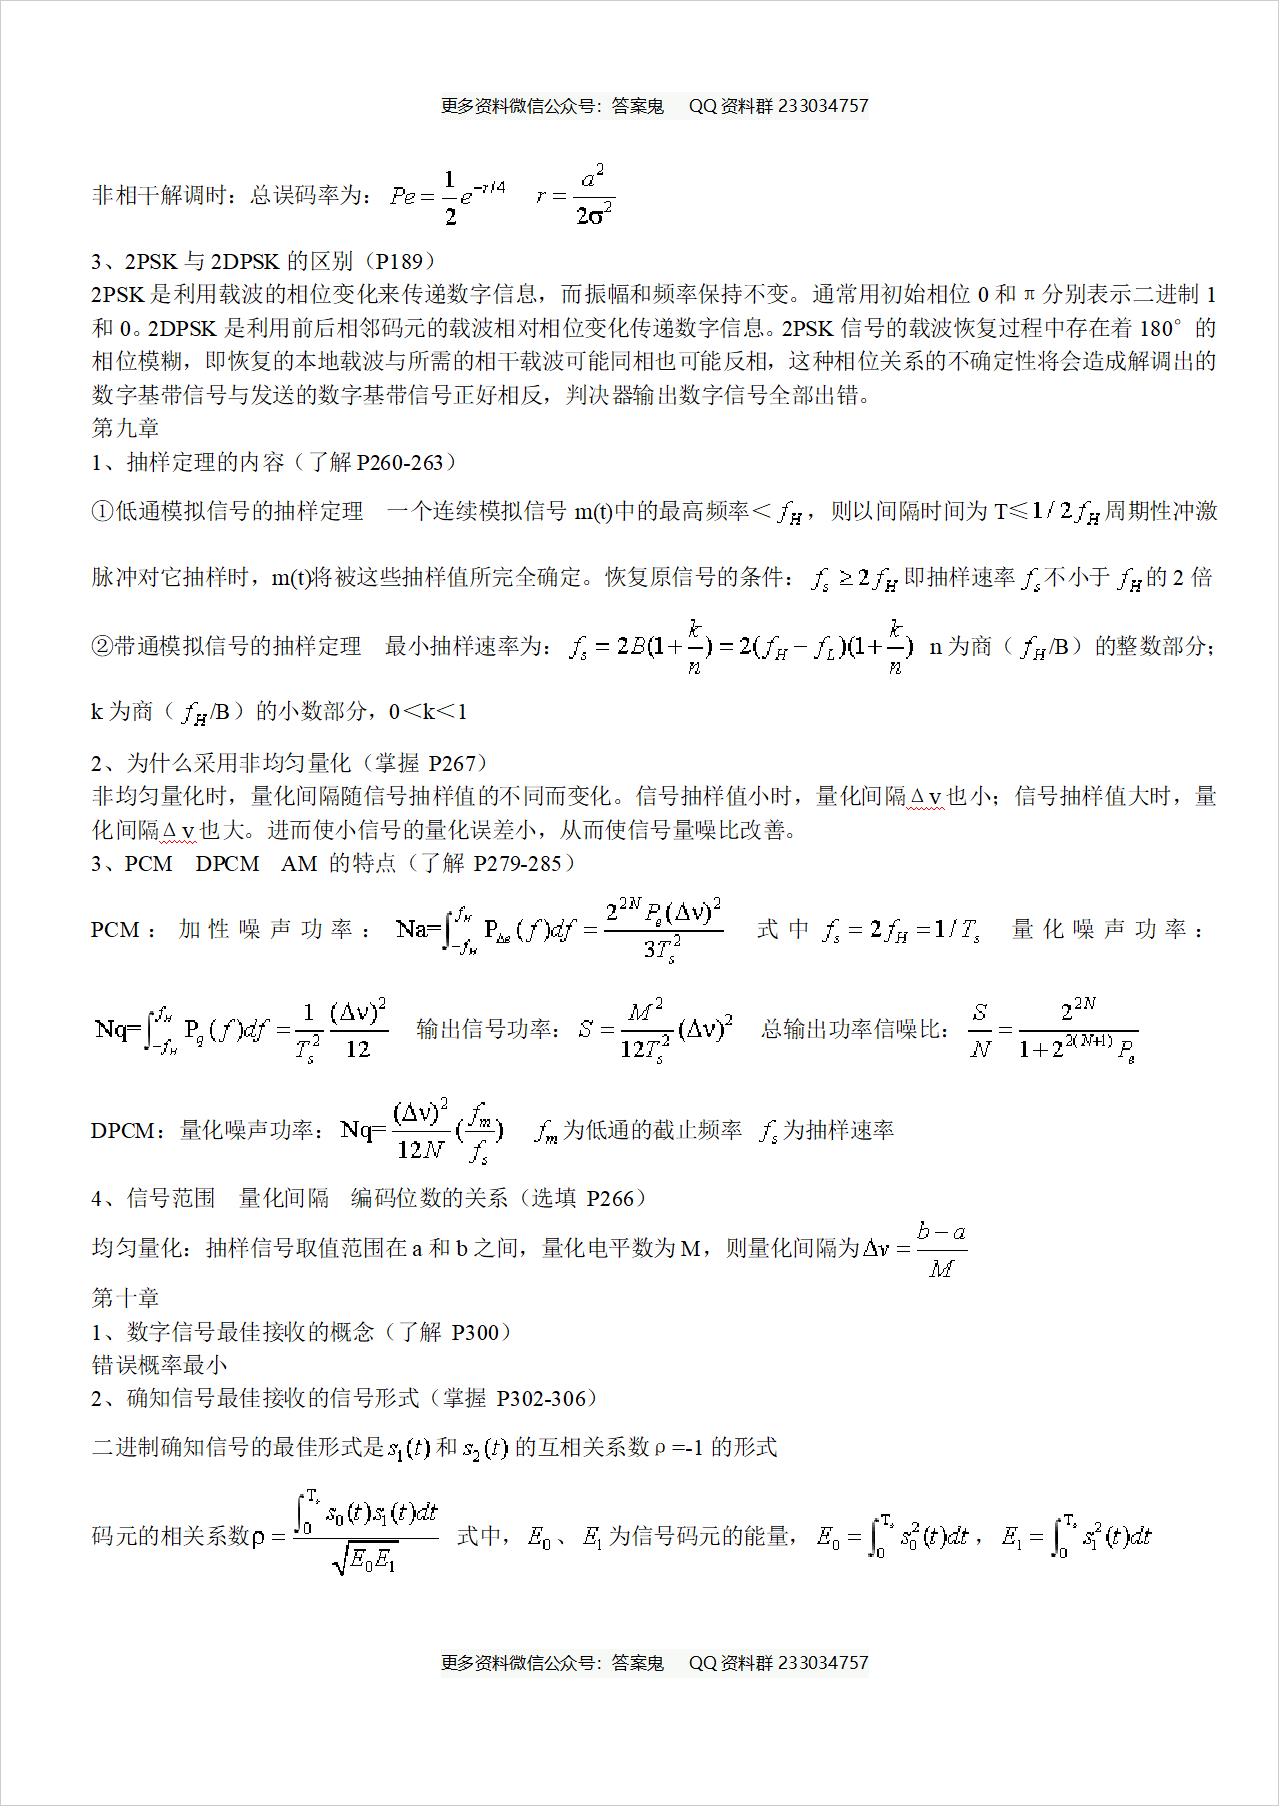 更多资料微信公众号：答案鬼 QQ资料群 233034757
非相干解调时：总误码率为： $Pe=\frac{1}{2}e^{-r/4}$ $r=\frac{a^2}{2\sigma^2}$
3、2PSK 与 2DPSK 的区别（P189）
2PSK 是利用载波的相位变化来传递数字信息，而振幅和频率保持不变。通常用初始相位 0 和 π 分别表示二进制 1
和 0。2DPSK 是利用前后相邻码元的载波相对相位变化传递数字信息。2PSK 信号的载波恢复过程中存在着 180° 的
相位模糊，即恢复的本地载波与所需的相干载波可能同相也可能反相，这种相位关系的不确定性将会造成解调出的
数字基带信号与发送的数字基带信号正好相反，判决器输出数字信号全部出错。
第九章
1、抽样定理的内容（了解 P260-263）
①低通模拟信号的抽样定理 一个连续模拟信号 m(t)中的最高频率＜$f_H$，则以间隔时间为 T≤$1/2f_H$ 周期性冲激
脉冲对它抽样时，m(t)将被这些抽样值所完全确定。恢复原信号的条件：$f_s \geq 2f_H$ 即抽样速率 $f_s$ 不小于 $f_H$ 的 2 倍
②带通模拟信号的抽样定理 最小抽样速率为：$f_s=2B(1+\frac{k}{n})=2(f_H-f_L)(1+\frac{k}{n})$ n 为商（$f_H$/B）的整数部分；
k 为商（$f_H$/B）的小数部分，0＜k＜1
2、为什么采用非均匀量化（掌握 P267）
非均匀量化时，量化间隔随信号抽样值的不同而变化。信号抽样值小时，量化间隔Δv 也小；信号抽样值大时，量
化间隔Δv 也大。进而使小信号的量化误差小，从而使信号量噪比改善。
3、PCM DPCM AM 的特点（了解 P279-285）
PCM：加性噪声功率：$Na=\int_{-f_H}^{f_H}P_{\Delta e}(f)df=\frac{2^{2N}P_e(\Delta v)^2}{3T_s^2}$ 式中 $f_s=2f_H=1/T_s$ 量化噪声功率：
$Nq=\int_{-f_H}^{f_H}P_q(f)df=\frac{1}{T_s^2}\frac{(\Delta v)^2}{12}$ 输出信号功率：$S=\frac{M^2}{12T_s^2}(\Delta v)^2$ 总输出功率信噪比：$\frac{S}{N}=\frac{2^{2N}}{1+2^{2(N+1)}P_e}$
DPCM：量化噪声功率：$Nq=\frac{(\Delta v)^2}{12N}(\frac{f_m}{f_s})$ $f_m$ 为低通的截止频率 $f_s$ 为抽样速率
4、信号范围 量化间隔 编码位数的关系（选填 P266）
均匀量化：抽样信号取值范围在 a 和 b 之间，量化电平数为 M，则量化间隔为 $\Delta v=\frac{b-a}{M}$
第十章
1、数字信号最佳接收的概念（了解 P300）
错误概率最小
2、确知信号最佳接收的信号形式（掌握 P302-306）
二进制确知信号的最佳形式是 $s_1(t)$ 和 $s_2(t)$ 的互相关系数 ρ=-1 的形式
码元的相关系数 $\rho=\frac{\int_0^{T_s}s_0(t)s_1(t)dt}{\sqrt{E_0E_1}}$ 式中，$E_0$、$E_1$ 为信号码元的能量，$E_0=\int_0^{T_s}s_0^2(t)dt$，$E_1=\int_0^{T_s}s_1^2(t)dt$
更多资料微信公众号：答案鬼 QQ资料群 233034757